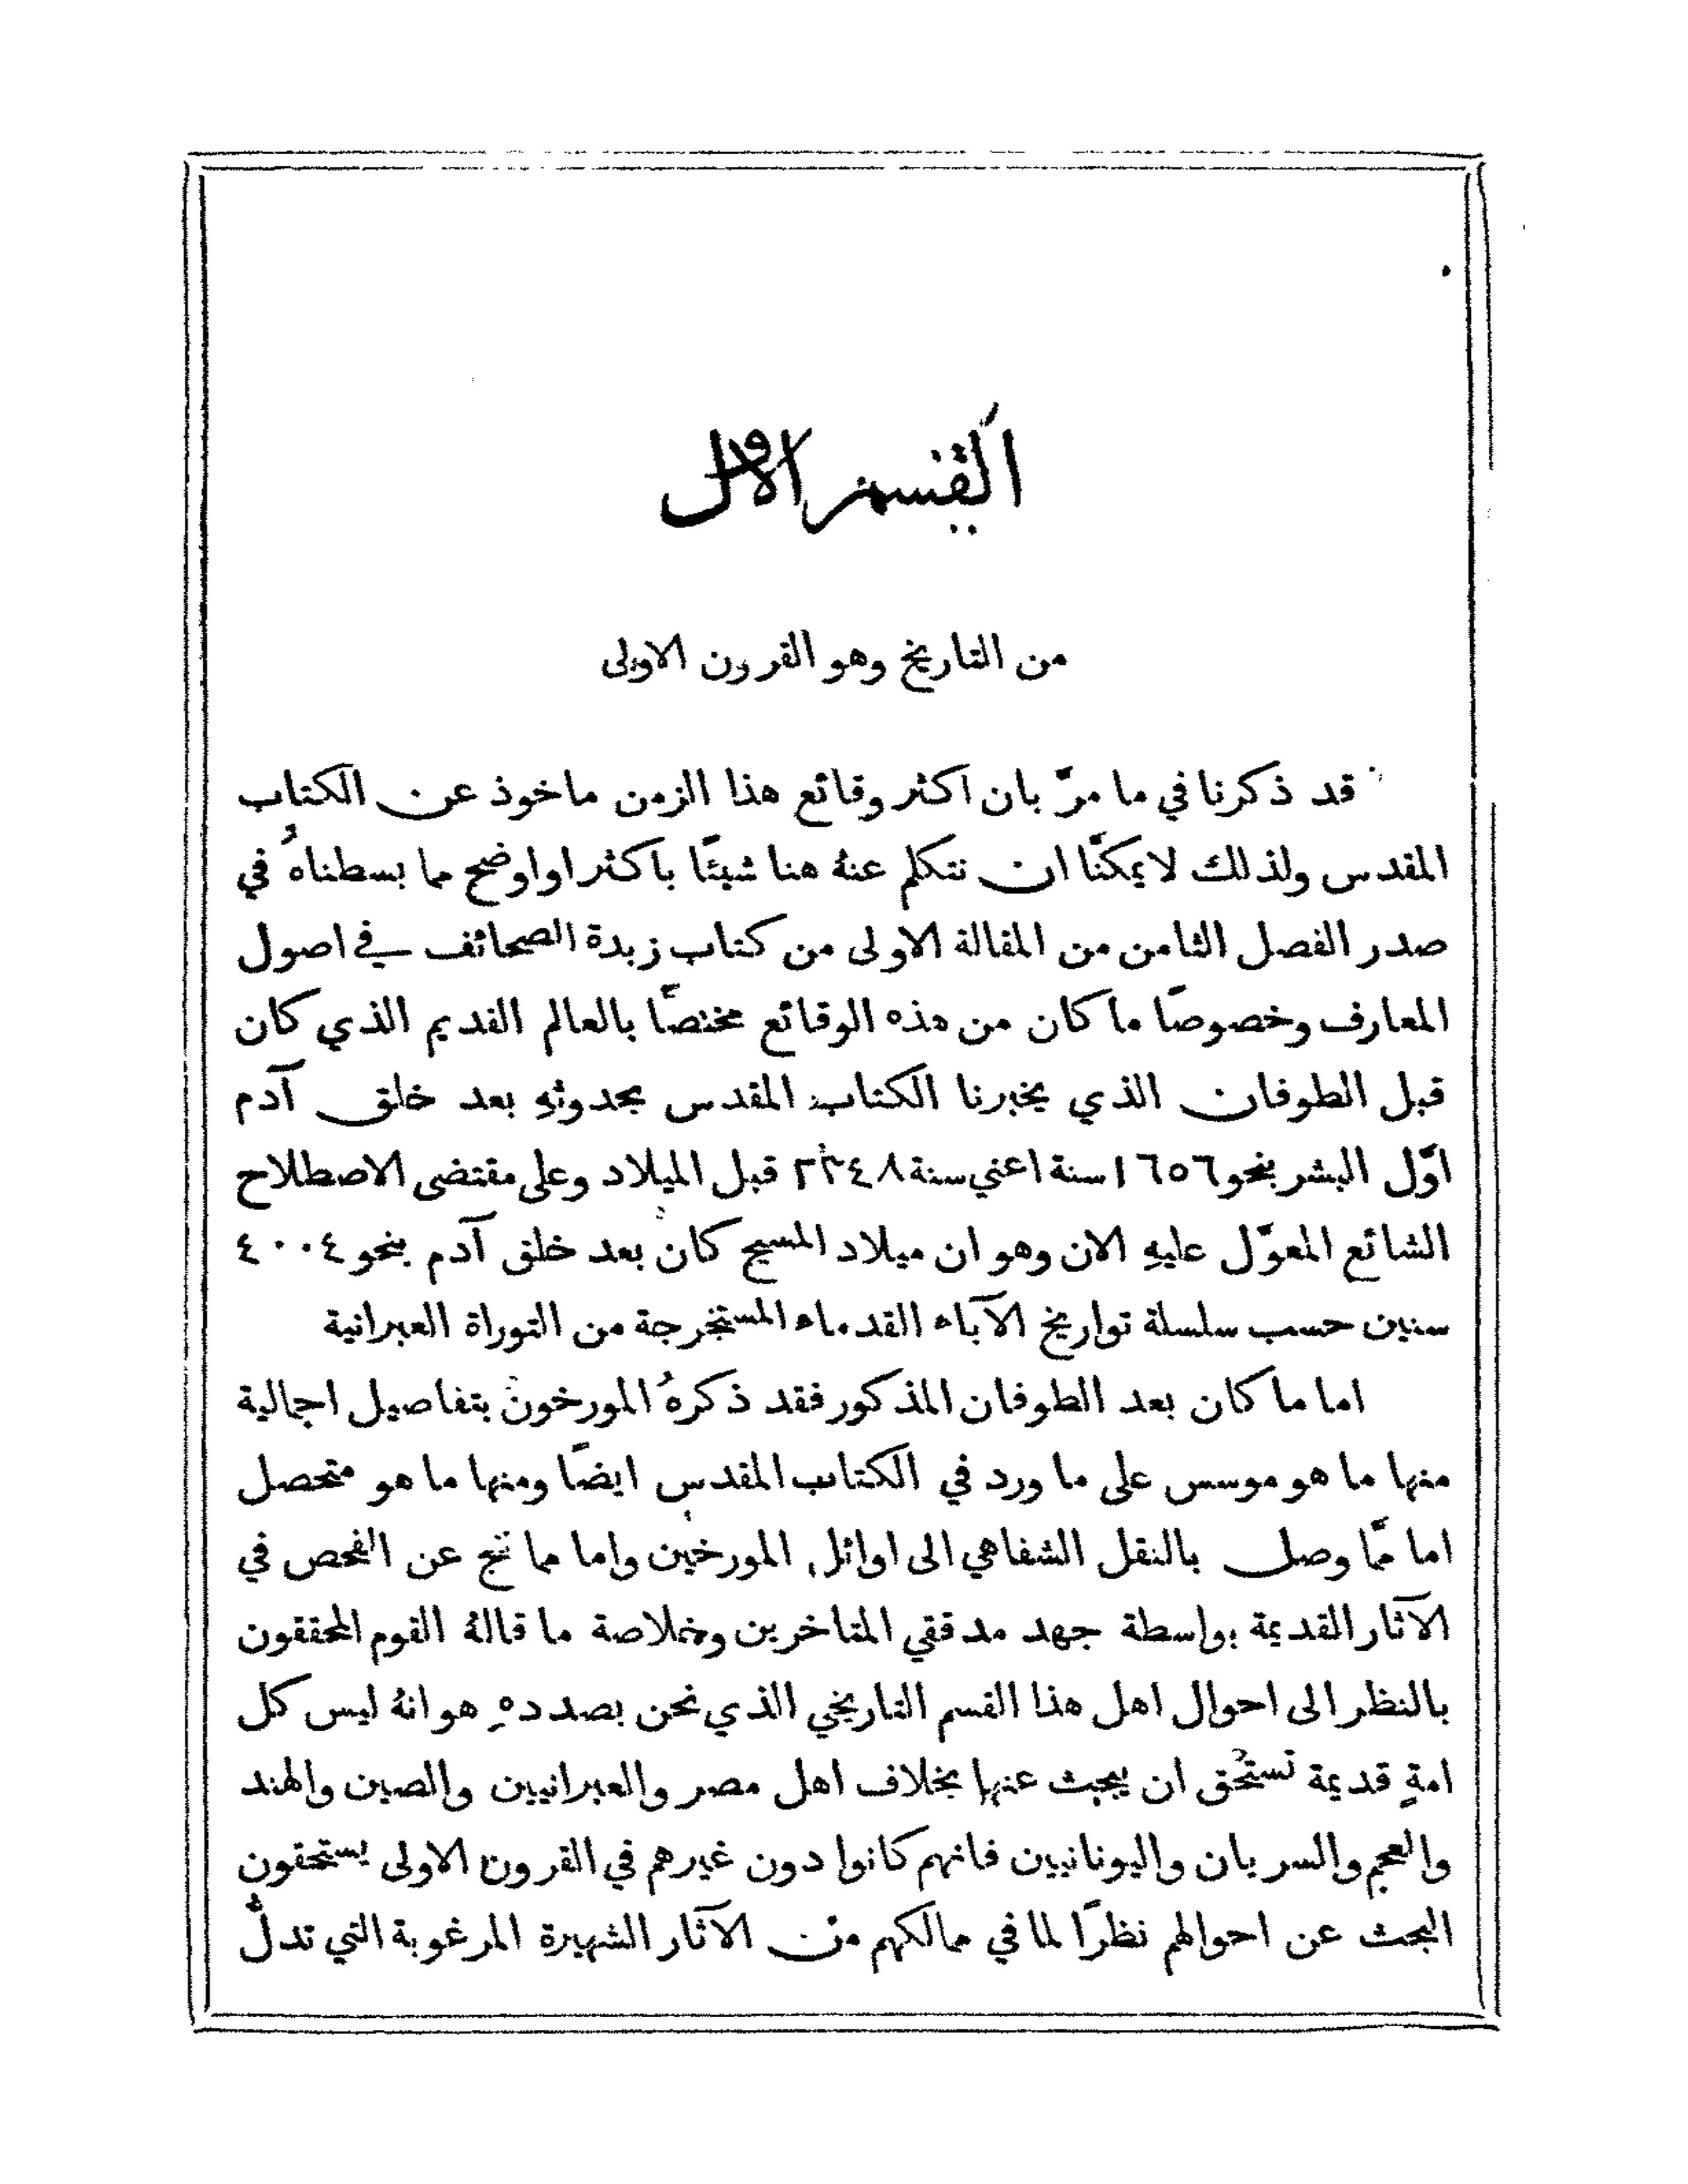 القسم الاول
من التاريخ وهو القرون الاولى
قد ذكرنا في ما مرّ بان اكثر وقائع هذا الزمن ماخوذ عن الكتاب
المقدس ولذلك لا يمكنّا ان نتكلم عنهُ هنا شيئًا باكثر او اوضح مما بسطناهُ في
صدر الفصل الثامن من المقالة الاولى من كتاب زبدة الصحائف في اصول
المعارف وخصوصًا ما كان من هذه الوقائع مختصًا بالعالم القديم الذي كان
قبل الطوفان الذي يخبرنا الكتاب المقدس بحدوثهِ بعد خلق آدم
اوّل البشر بنحو ١٦٥٦ سنة اعني سنة ٢٣٤٨ قبل الميلاد وعلى مقتضى الاصطلاح
الشائع المعوّل عليهِ الان وهو ان ميلاد المسيح كان بعد خلق آدم بنحو ٤٠٠٤
سنين حسب سلسلة تواريخ الآباء القدماء المستخرجة من التوراة العبرانية
اما ما كان بعد الطوفان المذكور فقد ذكرهُ المورخون بتفاصيل اجمالية
منها ما هو موسس على ما ورد في الكتاب المقدس ايضًا ومنها ما هو متحصل
اما ممّا وصل بالنقل الشفاهي الى اوائل المورخين واما مما نتج عن الفحص في
الآثار القديمة بواسطة جهد مدققي المتاخرين وخلاصة ما قالهُ القوم المحققون
بالنظر الى احوال اهل هذا القسم التاريخي الذي نحن بصددهِ هو انهُ ليس كل
امةٍ قديمة تستحق ان يبحث عنها بخلاف اهل مصر والعبرانيين والصين والهند
والعجم والسريان واليونانيين فانهم كانوا دون غيرهم في القرون الاولى يستحقون
البحث عن احوالهم نظرًا لما في ممالكهم من الآثار الشهيرة المرغوبة التي تدلُّ